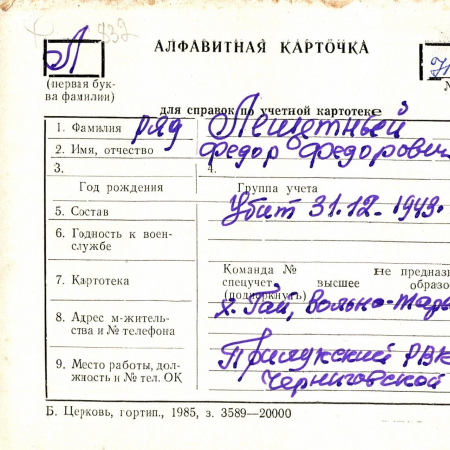 АЛФАВИТНАЯ КАРТОЧКА
Л
(первая бук-
ва фамилии)
для справок по учетной картотеке
1. Фамилия ряд
2. Имя, отчество Федор Федорович
3. 4.
Год рождения Группа учета
5. Состав Убит 31.12-1943.
6. Годность к воен-
службе
Команда № не предназ
7. Картотека спецучет высшее образо
(подчеркнуть)
х. Гай, Вольно-
8. Адрес м-житель-
ства и № телефона
Прилукский РВК
9. Место работы, дол-
жность и № тел. ОК
Черниговской
Б. Церковь, гортип., 1985, з. 3589—20000